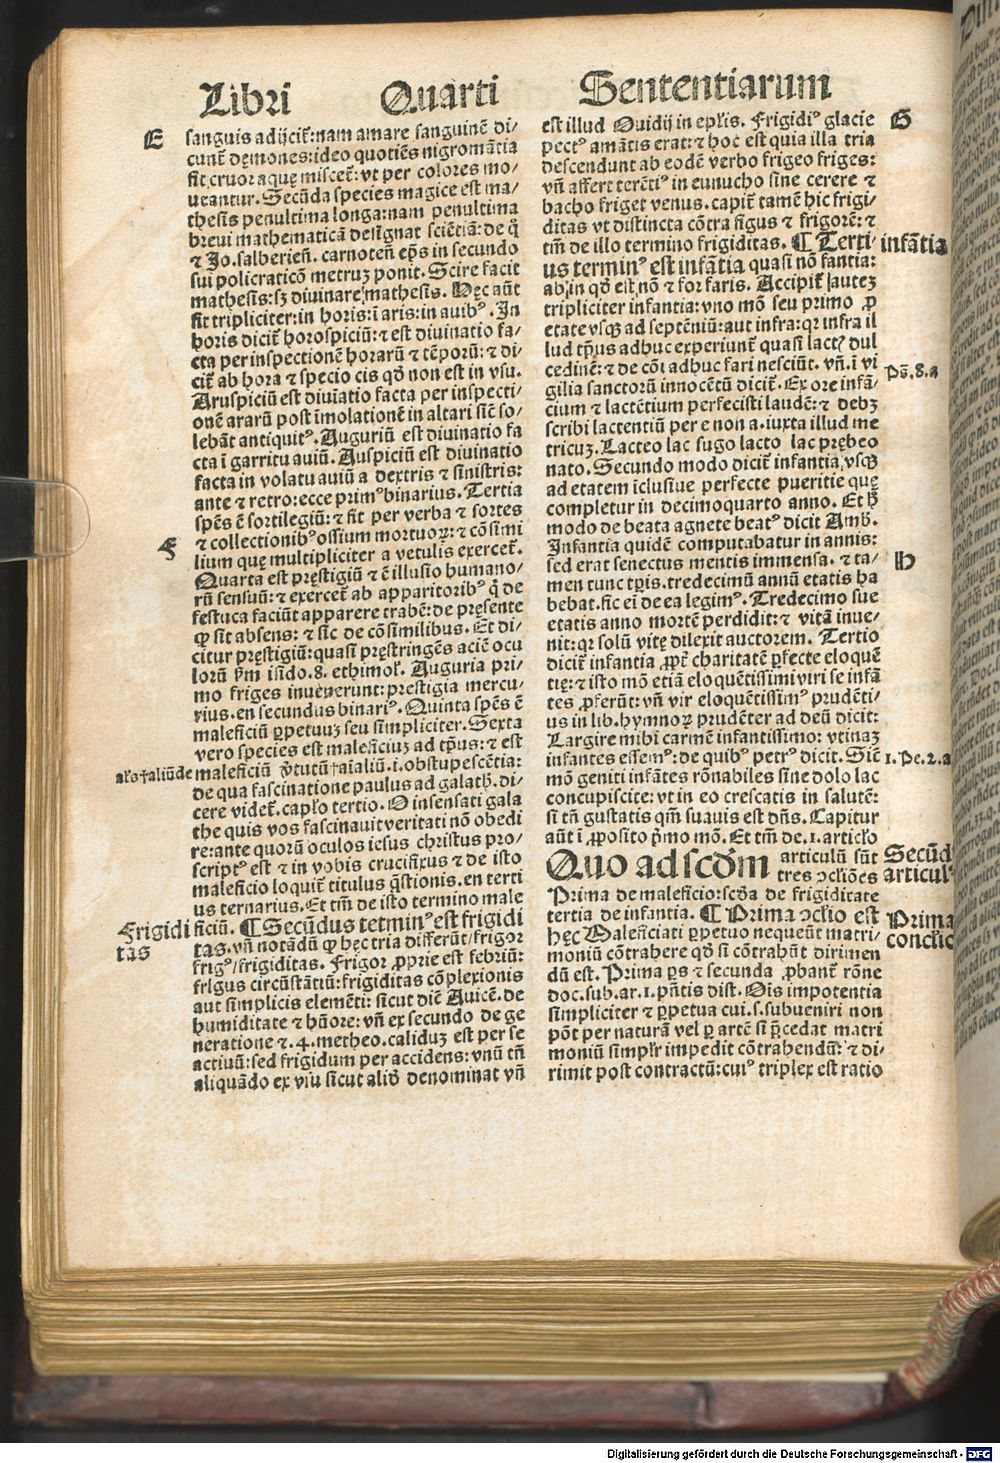 Libri Quarti Sententiarum
E
sanguis adijcit᷑:nam amare sanguinē di/
cunt dęmones:ideo quotiēs nigromātia
fit,cruor aquę miscet᷑:vt per colores mo/
ueantur. Secūda species magice est ma/
thesis penultima longa:nam penultima
breui mathematicā designat sciētiā: de q̊
⁊ Jo.salberien̄. carnoten̄ ep̄s in secundo
sui policraticōn metruꝫ ponit. Scire facit
mathesis:sꝫ diuinare mathesis. Hęc aūt
fit tripliciter:in horis:ī aris:in auibꝰ. In
horis dicit᷑ horospiciū:⁊ est diuinatio fa/
cta per inspectionē horarū ⁊ tēporū:⁊ di/
cit᷑ ab hora ⁊ specio cis qđ non est in vsu.
Aruspiciū est diuiatio facta per inspecti/
onē ararū post īmolationē in altari sic̄ so/
lebāt antiquitꝰ. Auguriū est diuinatio fa
cta ī garritu auiū. Auspiciū est diuinatio
facta in volatu auiū a dextris ⁊ sinistris:
ante ⁊ retro:ecce primꝰ binarius. Tertia
F
spēs ē sortilegiū: ⁊ fit per verba ⁊ sortes
⁊ collectionibꝰ ossium mortuoꝝ: ⁊ cōsimi
lium quę multipliciter a vetulis exercet᷑.
Quarta est pręstigiū ⁊ ē illusio humano/
rū sensuū: ⁊ exercet᷑ ab apparitoribꝰ q̇ de
festuca faciūt apparere trabē: de pręsente
ꝙ sit absens: ⁊ sic de cōsimilibus. Et di/
citur pręstigiū:quasi pręstringēs aciē ocu
lorū ẜm isido.8. ethimoł. Auguria pri/
mo friges inuenerunt:prestigia mercu/
rius.en secundus binariꝰ. Quinta spēs ē
maleficiū ꝑpetuuꝫ seu simpliciter. Sexta
vero species est maleficiuꝫ ad tp̄us: ⁊ est
maleficiū v̄tutū †aīaliū.i.obstupescētia:
ał̄o †aliūde
de qua fascinatione paulus ad galath. di/
cere videt᷑.capło tertio. O insensati gala
the quis vos fascinauit veritati nō obedi
re:ante quorū oculos iesus christus pro/
scriptꝰ est ⁊ in vobis crucifixus ⁊ de isto
maleficio loquit᷑ titulus q̄stionis.en terti
us ternarius. Et tm̄ de isto termino male
ficiū. ¶Secūdus tetminꝰ est frigidi
tas.vn̄ notādū ꝙ hęc tria differūt/frigor
Frigidi
tas
frigꝰ/frigiditas. Frigor ꝓprie est febriū:
frigus circūstātiū:frigiditas cōplexionis
aut simplicis elemēti: sicut dic̄ Auicē. de
humiditate ⁊ hūore: vn̄ ex secundo de ge
neratione ⁊.4.metheo.caliduꝫ est per se
actiuū:sed frigidum per accidens: vnū tn̄
aliquādo ex viu sicut aliđ denominat vn̄
est illud Ouidij in epł̄is. Frigidiꝰ glacie
G
pectꝰ amātis erat: ⁊ hoc est quia illa tria
descendunt ab eodē verbo frigeo friges:
vn̄ affert terētiꝰ in eunucho sine cerere ⁊
bacho friget venus. capit᷑ tamē hic frigi/
ditas vt distincta cōtra figus ⁊ frigorē: ⁊
tm̄ de illo termino frigiditas. ¶ Terti/
us terminꝰ est infātia quasi nō fantia:
infātia
ab in qđ est nō ⁊ for faris. Accipit᷑ autez
tripliciter infantia: vno mō seu primo ꝓ
etate vsqꝫ ad septēniū:aut infra:qꝛ infra il
lud tp̄us adhuc experiunt᷑ quasi lactꝭ dul
cedinē: ⁊ de cōi adhuc fari nesciūt. vn̄.ī vi
Ps̄.8.a
gilia sanctorū innocētū dicit᷑. Ex ore infā/
cium ⁊ lactētium perfecisti laudē: ⁊ debꝫ
scribi lactentiū per e non a.iuxta illud me
tricuꝫ. Lacteo lac sugo lacto lac prębeo
nato. Secundo modo dicit᷑ infantia,vsqꝫ
ad etatem īclusiue perfecte pueritie quę
completur in decimoquarto anno. Et h̄
modo de beata agnete beatꝰ dicit Amb.
Infantia quidē computabatur in annis:
H
sed erat senectus mentis immensa. ⁊ ta/
men tunc tp̄is.tredecimū annū etatis ha
bebat.sic ei de ea legimꝰ. Tredecimo sue
etatis anno mortē perdidit:⁊ vitā inue/
nit:qꝛ solū vitę dilexit auctorem. Tertio
dicit᷑ infantia ꝓpt̄ charitatē ꝑfecte eloquē
tię: ⁊ isto mō etiā eloquētissimi viri se infā
tes ꝓferūt: vn̄ vir eloquētissimꝰ prudēti/
us in lib.hymnoꝝ prudēter ad deū dicit:
Largire mihi carmē infantissimo: vtinaꝫ
infantes essemꝰ: de quibꝰ petrꝰ dicit. Sic̄
1.Pe.2.a
mō geniti infātes rōnabiles sine dolo lac
concupiscite: vt in eo crescatis in salutē:
si tn̄ gustatis qm̄ suauis est dn̄s. Capitur
aūt ī ꝓposito p̄mo mō. Et tm̄ de.1. articł̄o
Quo ad scđm articulū sūt
tres ɔcl̄iōes
Secūd
articulꝰ
Prima de maleficio:scđa de frigiditate
tertia de infantia. ¶ Prima ɔcl̄io est
Prima
conclio
hęc Maleficiati ꝑpetuo nequeūt matri/
moniū cōtrahere qđ si cōtrahūt dirimen
dū est. Prima ꝑs ⁊ secunda ꝓbant᷑ rōne
doc.sub.ar.1.pn̄tis dist. Oīs impotentia
simpliciter ⁊ ꝑpetua cui.s.subueniri non
pōt per naturā vel ꝑ artē si p̄cedat matri
moniū simpłr impedit cōtrahendū: ⁊ di/
rimit post contractū:cuiꝰ triplex est ratio
Digitalisierung gefördert durch die Deutsche Forschungsgemeinschaft - DFG